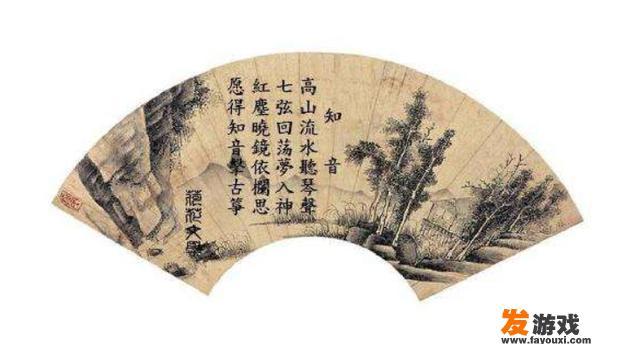 知音
高山流水聽琴聲
七弦回荡夢入神
紅塵曉鏡依欄思
愿得知音擊古箏
发游戏
www.fayouxi.com